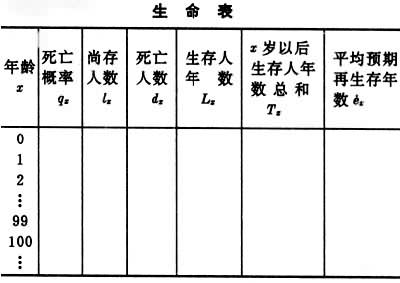 生 命 表
年龄 x
死亡概率 qx
尚存人数 lx
死亡人数 dx
生存人年 数 Lx
x 岁以后生存人年数总和 Tx
平均预期再生存年数 e̊x
0
1
2
⋮
99
100
⋮